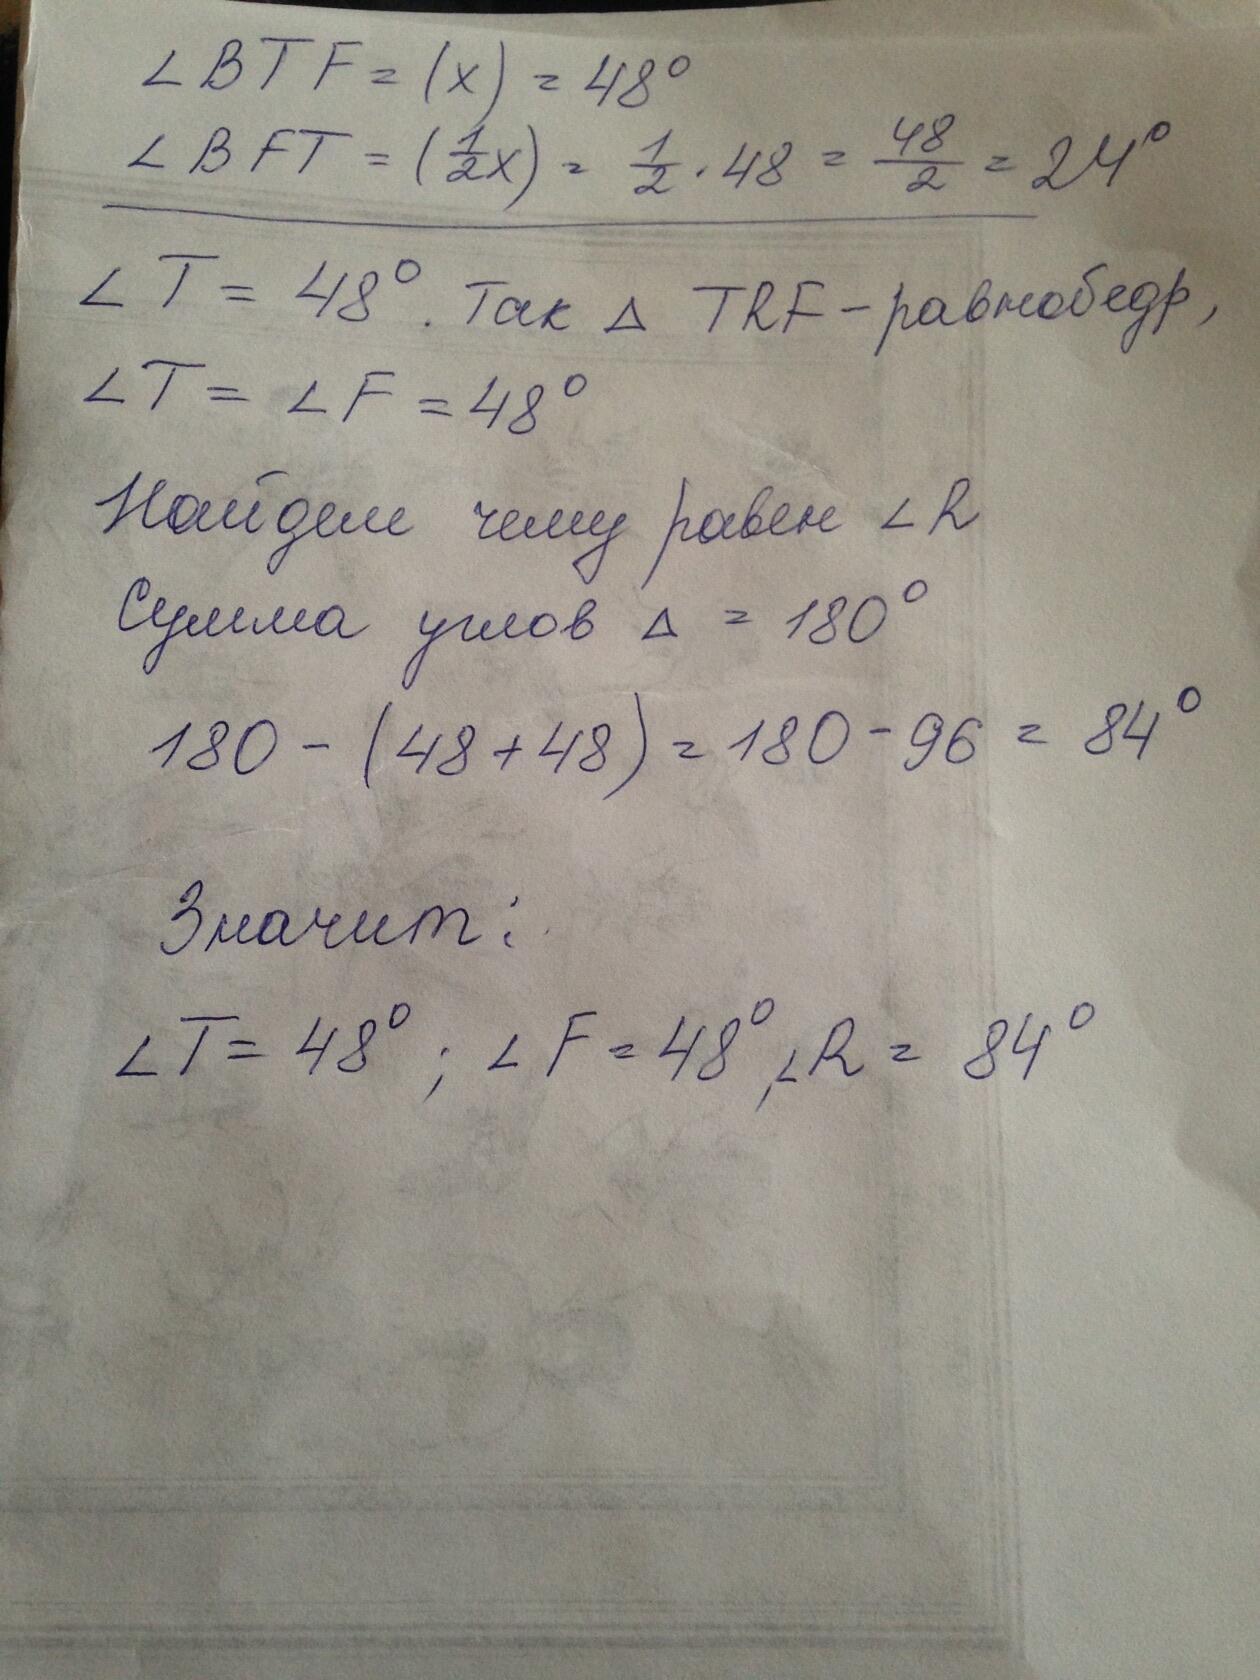 ∠BTF = (x) = 48°
∠BFT = (1/2x) = 1/2 · 48 = 48/2 = 24°
∠T = 48°. Так Δ TRF - равнобедр,
∠T = ∠F = 48°
Найдем чему равен ∠R
Сумма углов Δ = 180°
180 - (48 + 48) = 180 - 96 = 84°
Значит:
∠T = 48°; ∠F = 48°, ∠R = 84°